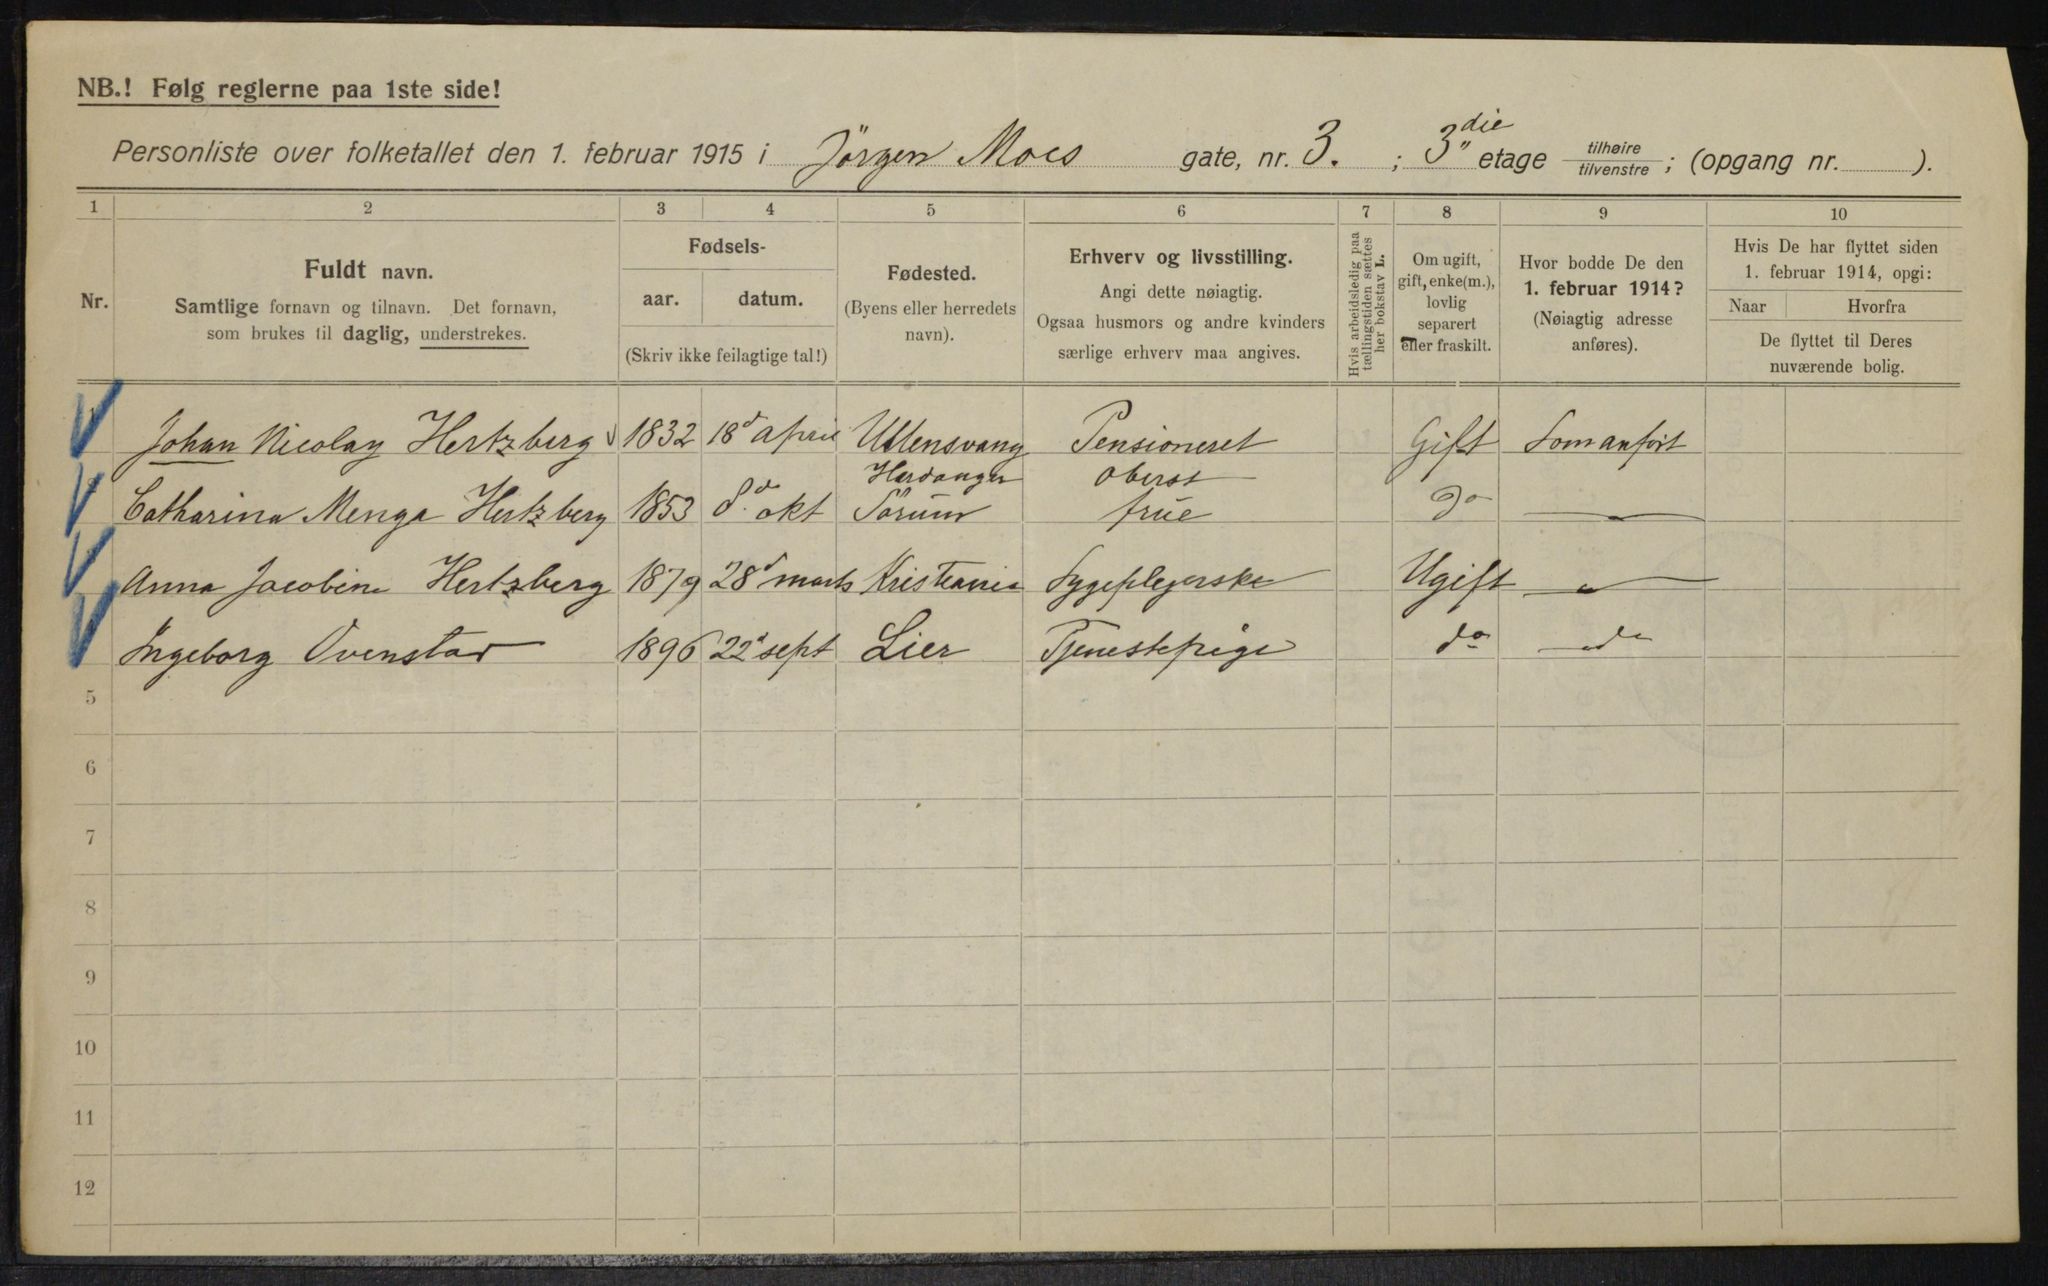 NB.! Følg reglerne paa 1ste side!
Personliste over folketallet den 1. februar 1915 i Jörgen Moes gate, nr. 3. ; 3die etage tilhøire tilvenstre ; (opgang nr. ).
1 2 3 4 5 6 7 8 9 10
Nr.
Fuldt navn.
Samtlige fornavn og tilnavn. Det fornavn,
som brukes til daglig, understrekes.
Fødsels-
aar. datum.
(Skriv ikke feilagtige tal!)
Fødested.
(Byens eller herredets
navn).
Erhverv og livsstilling.
Angi dette nøiagtig.
Ogsaa husmors og andre kvinders
særlige erhverv maa angives.
Hvis arbeidsledig paa
tællingstiden sættes
her bokstav L.
Om ugift,
gift, enke(m.),
lovlig
separert
eller fraskilt.
Hvor bodde De den
1. februar 1914?
(Nøiagtig adresse
anføres).
Hvis De har flyttet siden
1. februar 1914, opgi:
Naar Hvorfra
De flyttet til Deres
nuværende bolig.
Johan Nicolay Hertzberg 1832 18d april Ullensvang Hardanger Pensioneret oberst Gift Som anfört
Catharina Menga Hertzberg 1853 8d. okt Sørum frue do
Anna Jacobine Hertzberg 1879 28d marts Kristiania Sygeplejerske Ugift
Ingeborg Ovenstad 1896 22d sept Lier Tjenestepige do do
5
6
7
8
9
10
11
12